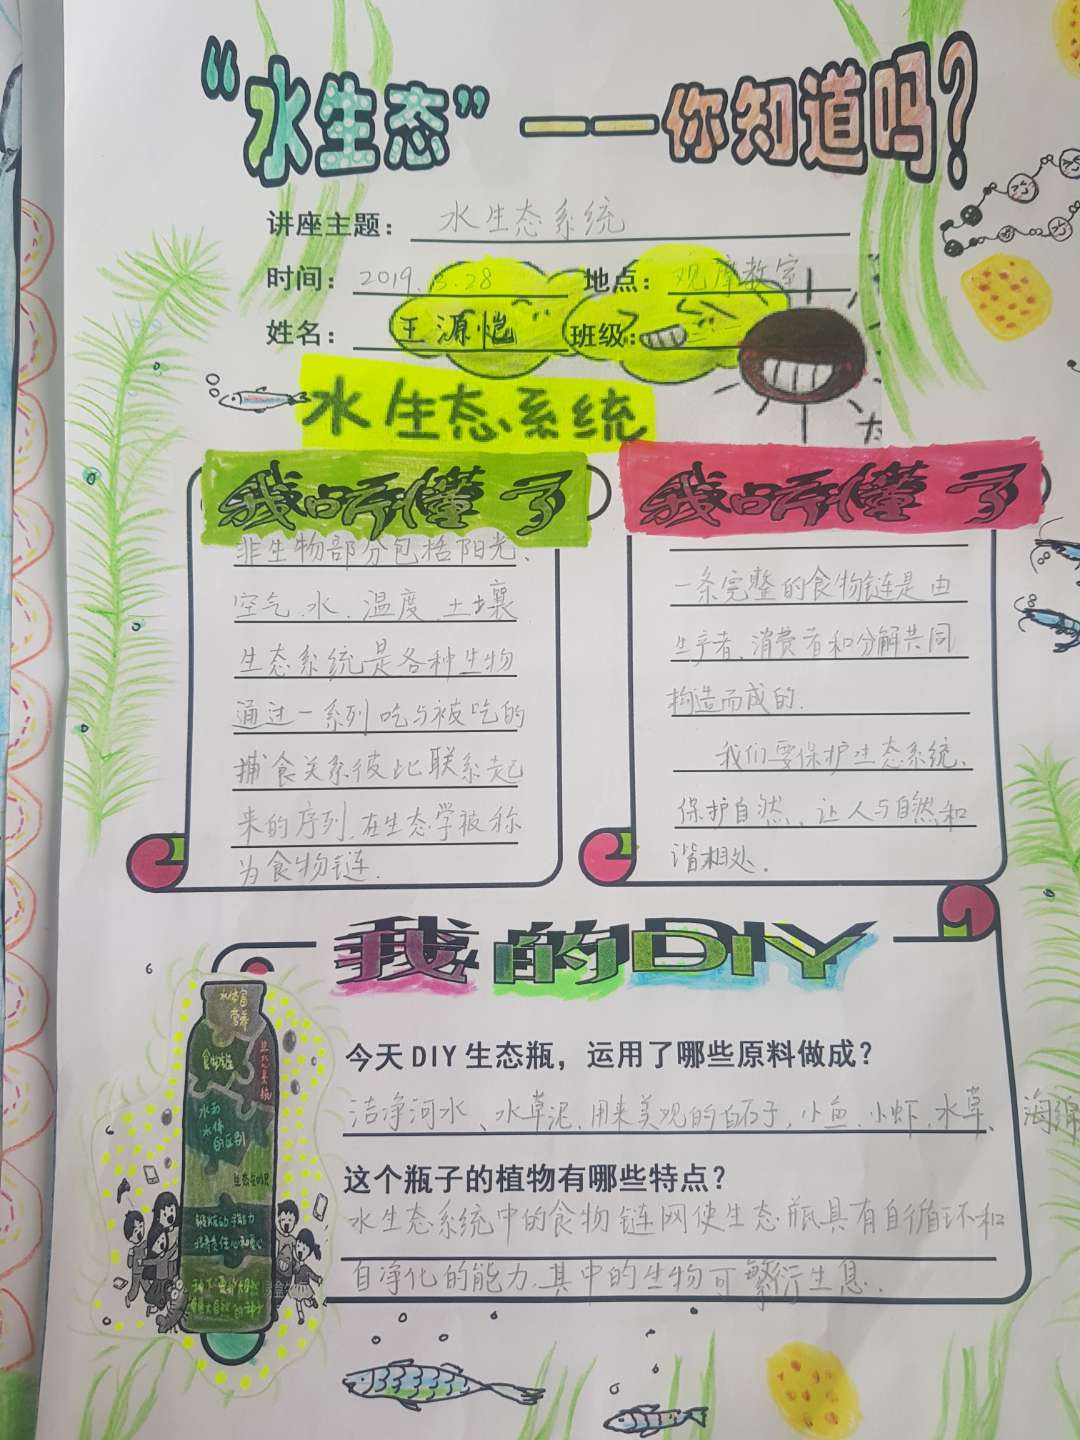 “水生态”——你知道吗?
讲座主题: 水生态系统
时间: 2019.3.28 地点: 观摩教室
姓名: 王源恺 班级:
水生态系统
我听懂了
非生物部分包括阳光、
空气、水、温度、土壤
生态系统是各种生物
通过一系列吃与被吃的
捕食关系彼此联系起
来的序列,在生态学被称
为食物链.
我听懂了
一条完整的食物链是由
生产者、消费者和分解共同
构造而成的.
我们要保护生态系统、
保护自然、让人与自然和
谐相处.
我的DIY
今天DIY生态瓶,运用了哪些原料做成?
洁净河水、水草泥,用来美观的白石子,小鱼、小虾,水草、海绵
这个瓶子的植物有哪些特点?
水生态系统中的食物链网使生态瓶具有自循环和
自净化的能力.其中的生物可繁衍生息.
水体富
营养
食物链
生态系统
水和
水体
的区别